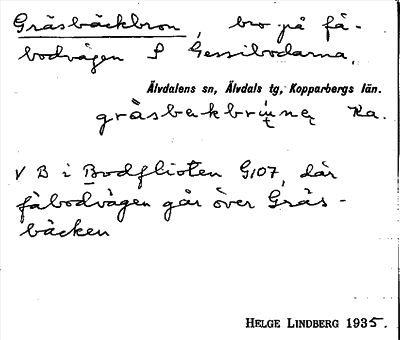 Gräsbäckbron, bro på fä-
bodvägen S Gessibodarna.
Älvdalens sn, Älvdals tg, Kopparbergs län.
gräsbekbrunę Ka.
V B i Bodflioten G107, där
fäbodvägen går över Gräs-
bäcken
HELGE LINDBERG 1935.